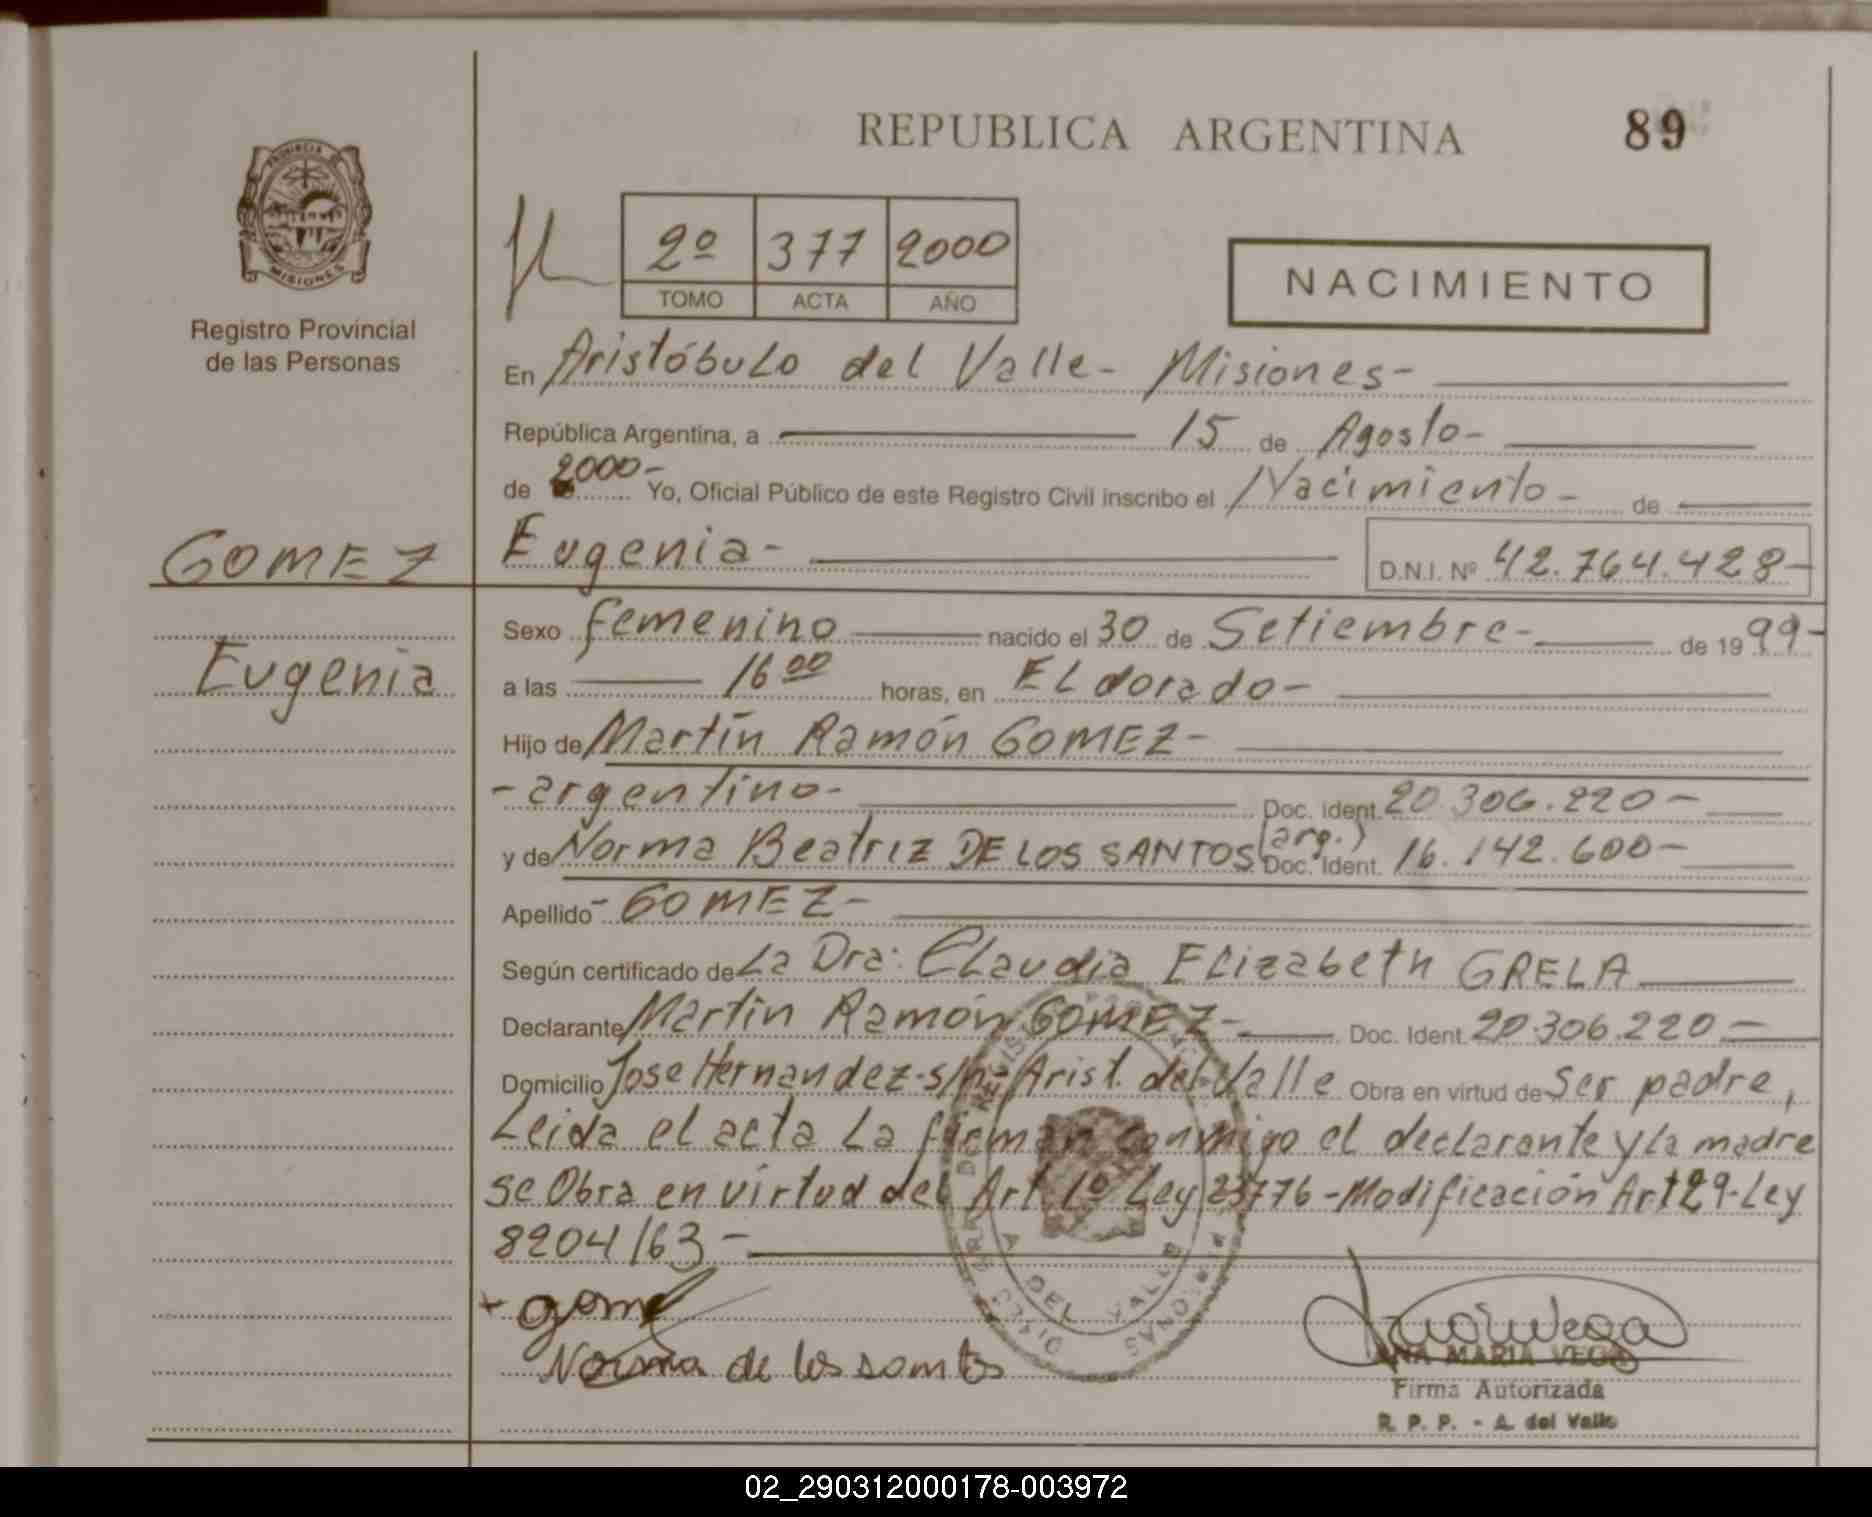 REPUBLICA ARGENTINA
89
PROVINCIA DE
MISIONES
Registro Provincial
de las Personas
2º 377 2000
TOMO ACTA AÑO
NACIMIENTO
En Aristóbulo del Valle- Misiones-
República Argentina, a 15 de Agosto-
de 2000- Yo, Oficial Público de este Registro Civil inscribo el Nacimiento- de
GOMEZ
Eugenia- D.N.I. Nº 42.764.428-
Sexo femenino nacido el 30 de Setiembre- de 1999-
Eugenia
a las 16 00 horas, en ELdorado-
Hijo de Martín Ramón GOMEZ-
-argentino- Doc. Ident. 20.306.220-
y de Norma Beatriz DE LOS SANTOS (arg.) Doc. Ident. 16.142.600-
Apellido- GOMEZ-
Según certificado de La Dra: Claudia Elizabeth GRELA
Declarante Martín Ramón GOMEZ- Doc. Ident. 20.306.220-
Domicilio Jose Hernandez-s/n- Arist. del Valle Obra en virtud de ser padre,
Leida el acta la firman conmigo el declarante y la madre
se Obra en virtud del Art. 1º Ley 23776-Modificación Art 29-Ley
8204/63-
+ gomez
Norma de los santos
A. DEL VALLE
ANA MARIA VEGA
Firma Autorizada
R. P. P. - A. del Valle
02_290312000178-003972